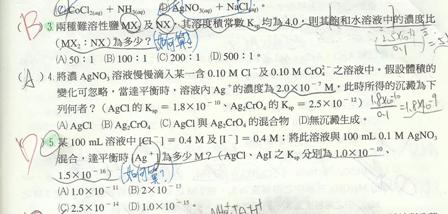 (C)CoCl₂(aq) + NH₃(aq) (D)AgNO₃(aq) + NaCl(aq)。
B 3. 兩種難溶性鹽 MX₂ 及 NX,其溶度積常數 Ksp 均為 4.0,則其飽和水溶液中的濃度比
(MX₂:NX)為多少?(如何算?)
(A) 50:1 (B) 100:1 (C) 200:1 (D) 500:1。
(A) 4. 將濃 AgNO₃ 溶液慢慢滴入某一含 0.10 M Cl⁻ 及 0.10 M CrO₄²⁻ 之溶液中。假設體積的
變化可忽略,當達平衡時,溶液內 Ag⁺ 的濃度為 2.0×10⁻⁷ M,此時所得的沉澱為下
列何者?(AgCl 的 Ksp = 1.8×10⁻¹⁰、Ag₂CrO₄ 的 Ksp = 2.5×10⁻¹²)
(A) AgCl (B) Ag₂CrO₄ (C) AgCl 與 Ag₂CrO₄ 的混合物 (D)無沉澱生成。
D 5. 某 100 mL 溶液中 [Cl⁻] = 0.4 M 及 [I⁻] = 0.4 M;將此溶液與 100 mL 0.1 M AgNO₃
混合,達平衡時 [Ag⁺] 為多少 M?(AgCl、AgI 之 Ksp 分別為 1.0×10⁻¹⁰、
1.5×10⁻¹⁶)(如何算?)
(A) 1.0×10⁻¹¹ (B) 2×10⁻¹³
(C) 2.5×10⁻¹⁴ (D) 1.0×10⁻¹⁵。